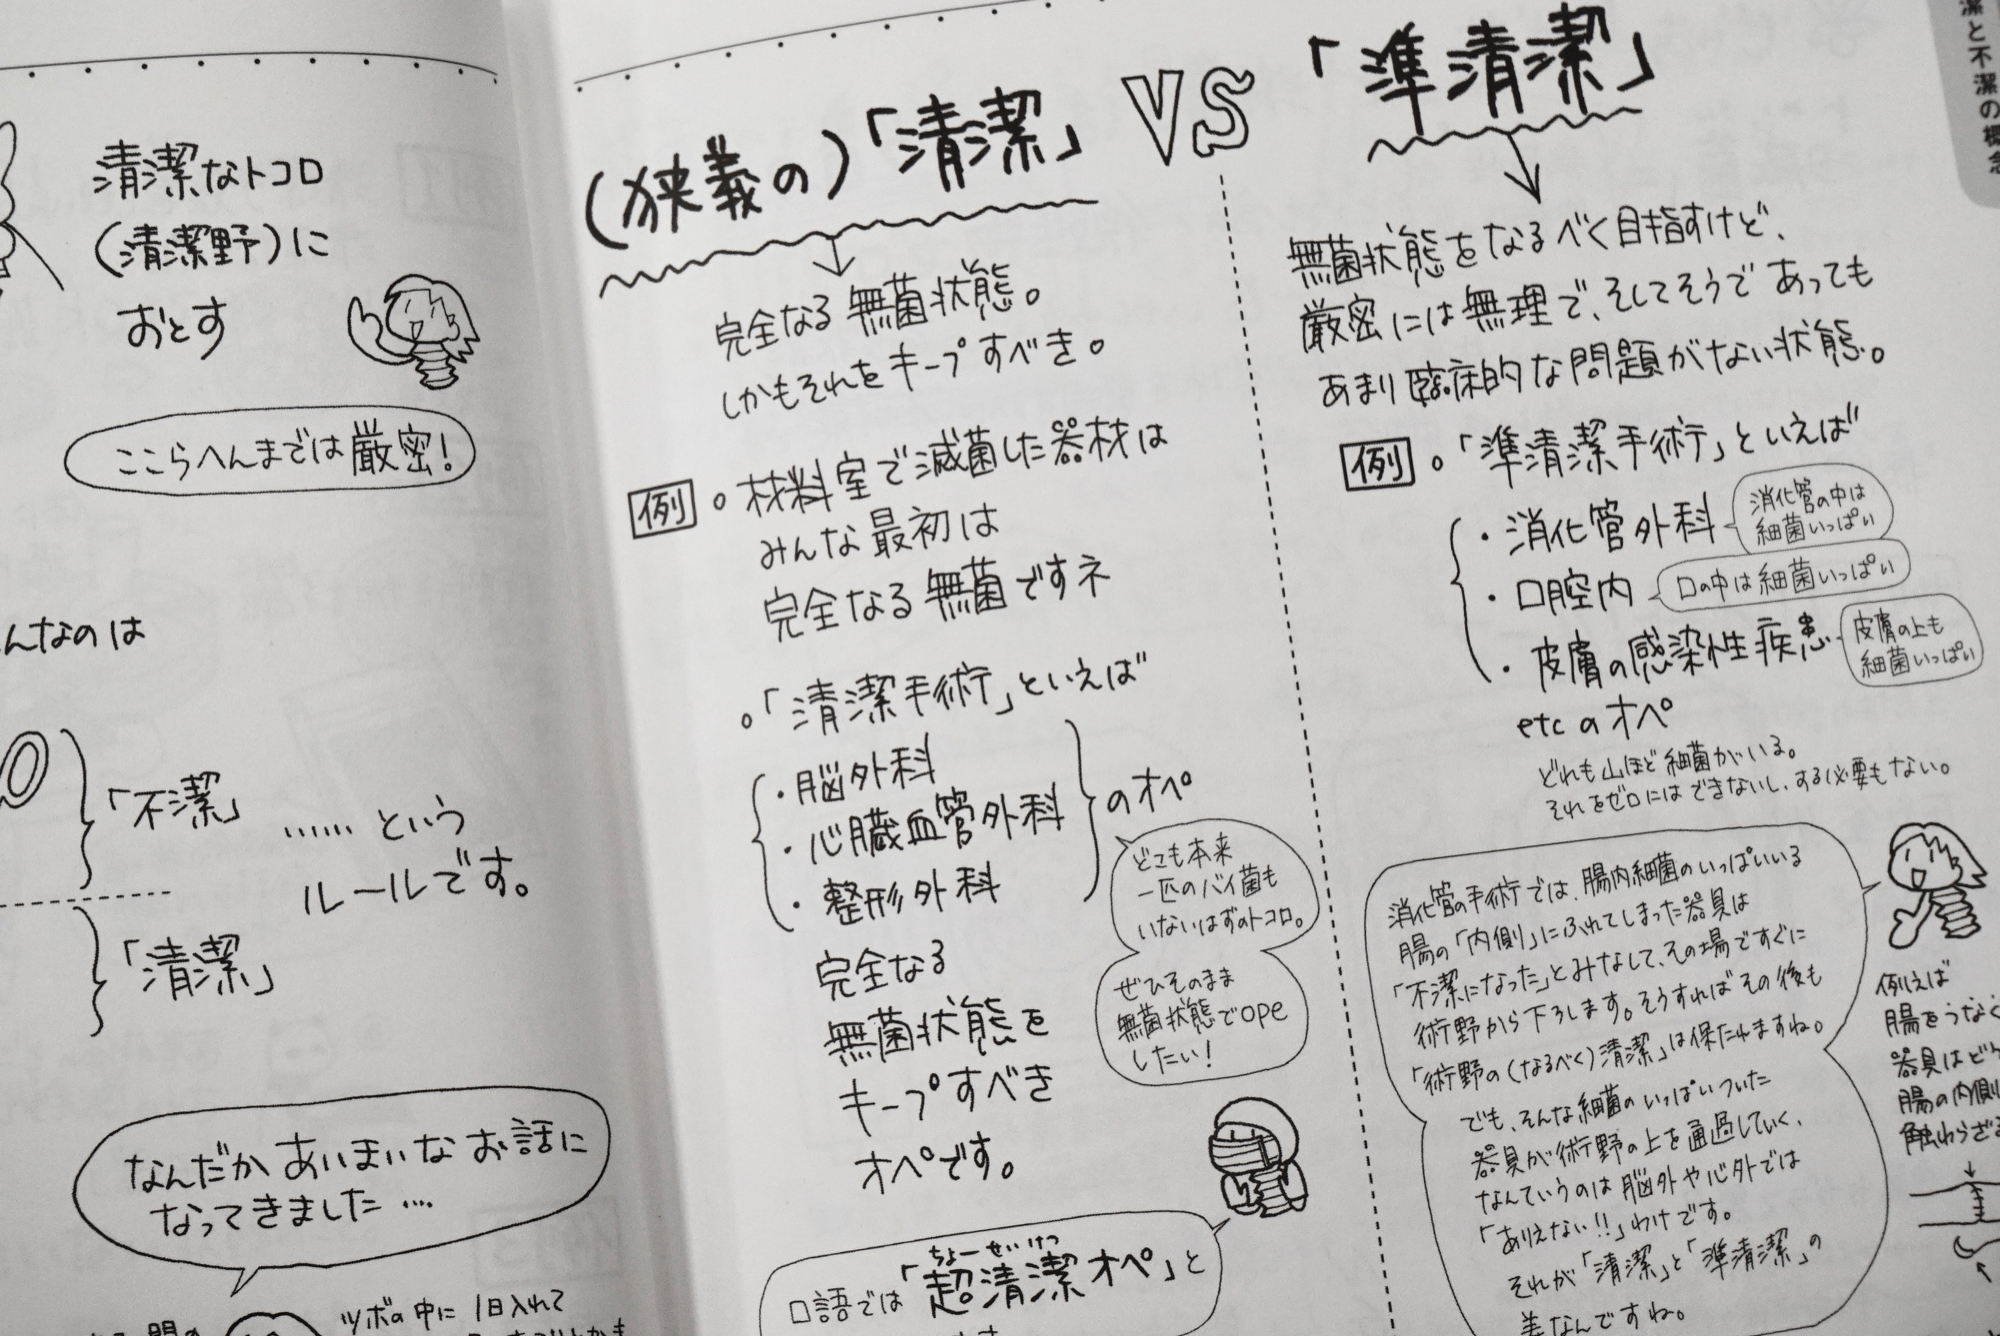 清潔なトコロ
(清潔野)に
おとす
ここらへんまでは厳密!
んなのは
「不潔」
……という
ルールです。
「清潔」
なんだか あいまいな お話に
なってきました…
ツボの中に 1日入れて
(狭義の)「清潔」 VS 「準清潔」
完全なる 無菌状態。
しかもそれをキープすべき。
例 。材料室で滅菌した器材は
みんな最初は
完全なる無菌ですネ
。「清潔手術」といえば
・脳外科
・心臓血管外科
・整形外科
のオペ
どこも本来
一匹のバイ菌も
いないはずのトコロ。
ぜひそのまま
無菌状態でope
したい!
完全なる
無菌状態を
キープすべき
オペです。
ちょーせいけつ
口語では「超清潔オペ」と
無菌状態をなるべく目指すけど、
厳密には無理で、そしてそうであっても
あまり臨床的な問題がない状態。
例 。「準清潔手術」といえば
・消化管外科
消化管の中は
細菌いっぱい
・口腔内
口の中は細菌いっぱい
・皮膚の感染性疾患
皮膚の上も
細菌いっぱい
etcのオペ
どれも山ほど細菌がいる。
それをゼロにはできないし、する必要もない。
消化管の手術では、腸内細菌のいっぱいいる
腸の「内側」にふれてしまった器具は
「不潔になった」とみなして、その場ですぐに
術野から下ろします。そうすればその後も
「術野の(なるべく)清潔」は保たれますね。
でも、そんな細菌のいっぱいついた
器具が術野の上を通過していく、
なんていうのは脳外や心外では
「ありえない!!」わけです。
それが「清潔」と「準清潔」の
差なんですね。
例えば
腸をうなぐ
器具はどう
腸の内側
触れわらざる
潔と不潔の概念